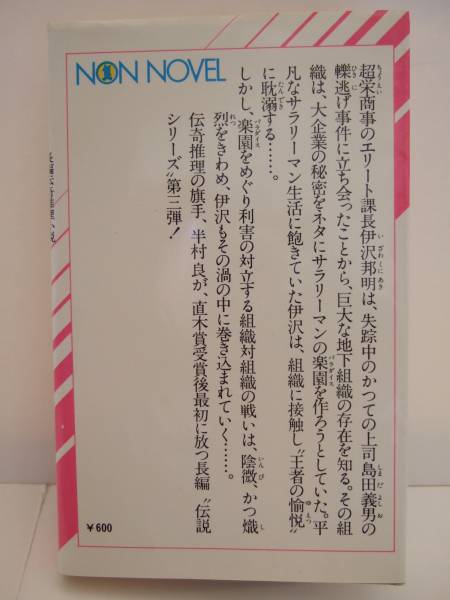 NON NOVEL
超栄商事のエリート課長伊沢邦明は、失踪中のかつての上司島田義男の
轢逃げ事件に立ち会ったことから、巨大な地下組織の存在を知る。その組
織は、大企業の秘密をネタにサラリーマンの楽園を作ろうとしていた。平
凡なサラリーマン生活に飽きていた伊沢は、組織に接触し〝王者の愉悦〟
に耽溺する……。
しかし、楽園をめぐり利害の対立する組織対組織の戦いは、陰微、かつ熾
烈をきわめ、伊沢もその渦の中に巻き込まれていく……。
伝奇推理の旗手、半村良が、直木賞受賞後最初に放つ長編〝伝説
シリーズ〟第三弾！
￥600